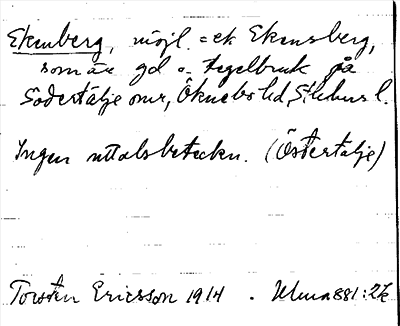 Ekenberg, möjl. = ek Ekensberg,
som är gd o. tegelbruk på
Södertälje omr, Öknebo hd, Sthlms l.
Ingen uttalsbeteckn. (Östertälje)
Torsten Ericsson 1914 . Ulma 881:27k